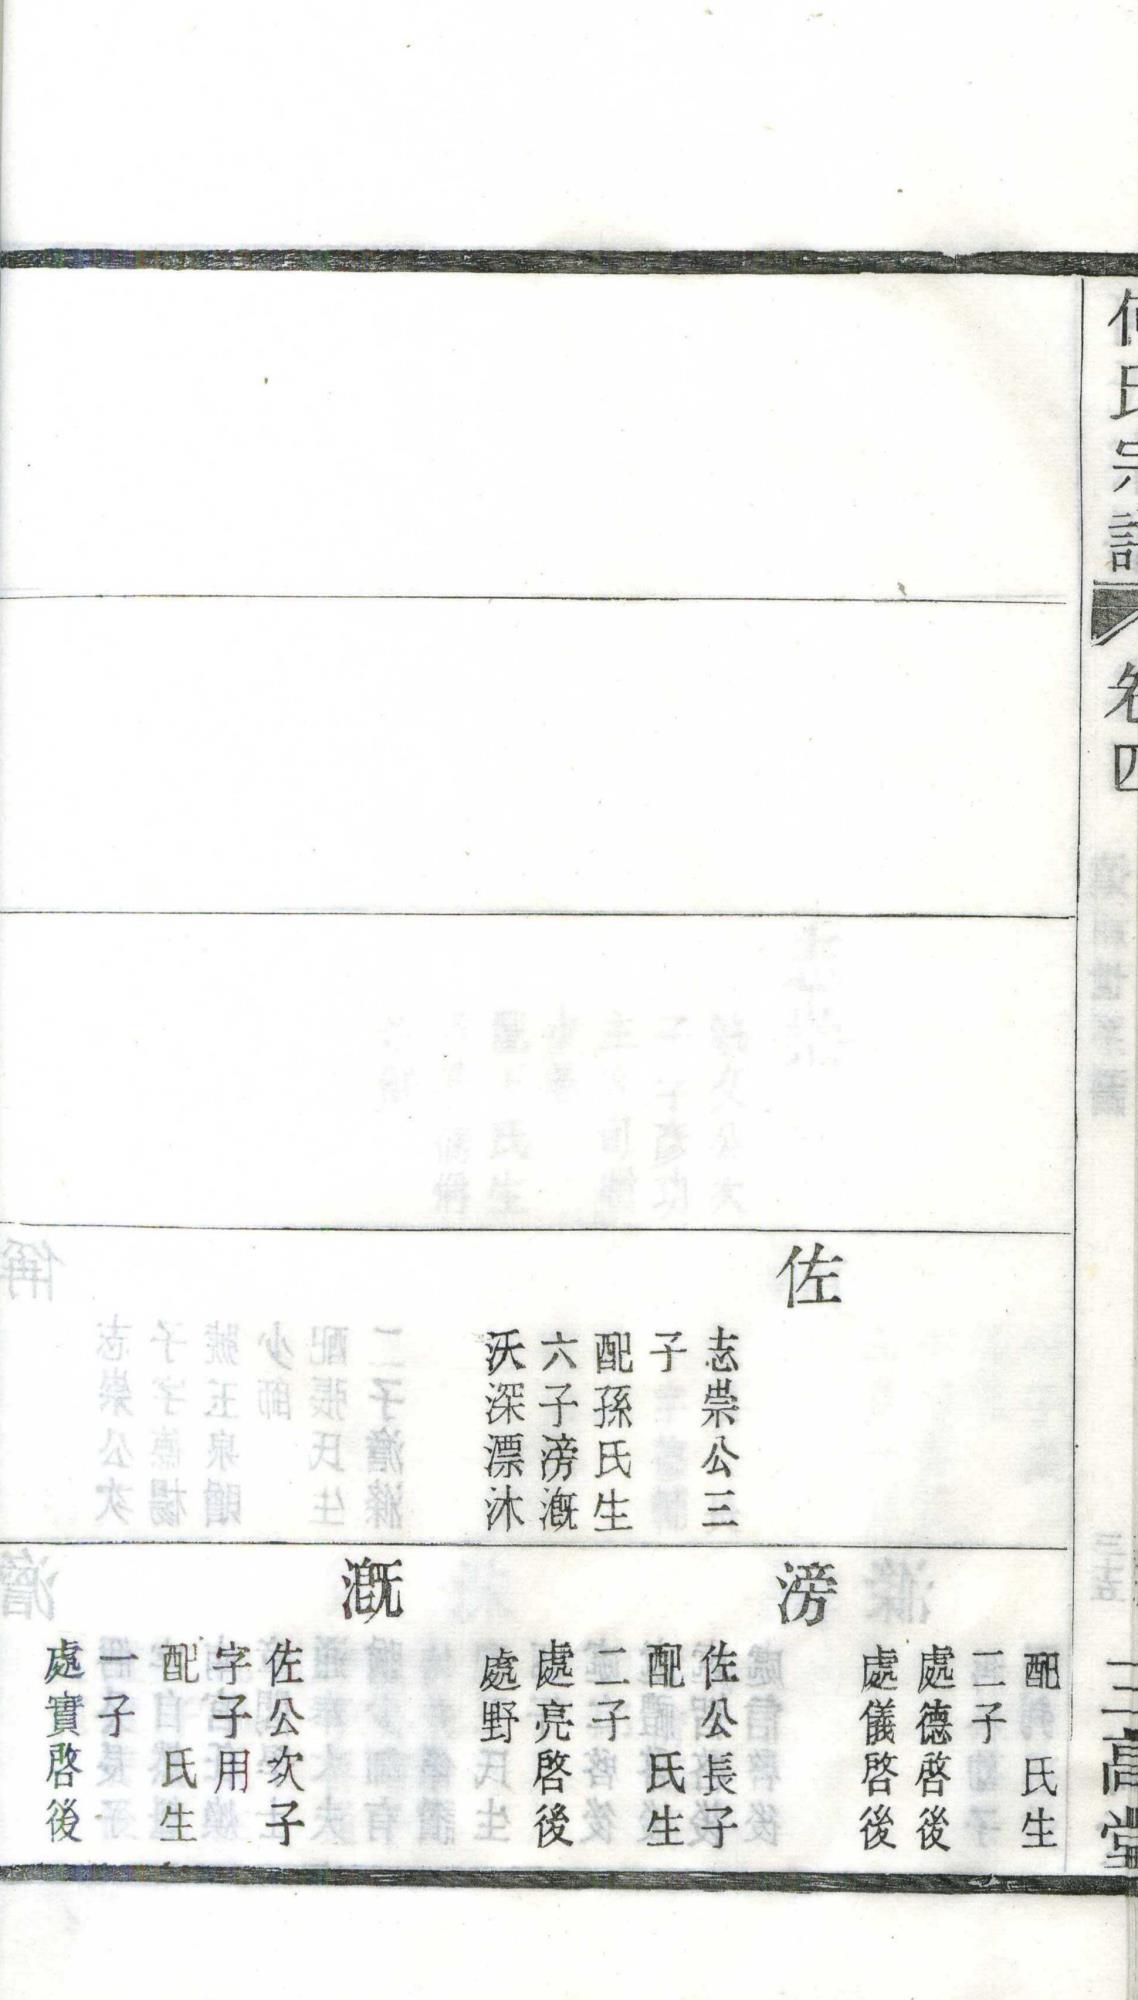 何氏宗譜
卷四
三高堂
佐
志崇公三
子
配孫氏生
六子滂漑
沃深漂沐
配 氏生
二子
處德啓後
處儀啓後
滂
佐公長子
配 氏生
二子
處亮啓後
處野
漑
佐公次子
字子用
配 氏生
一子
處實啓後